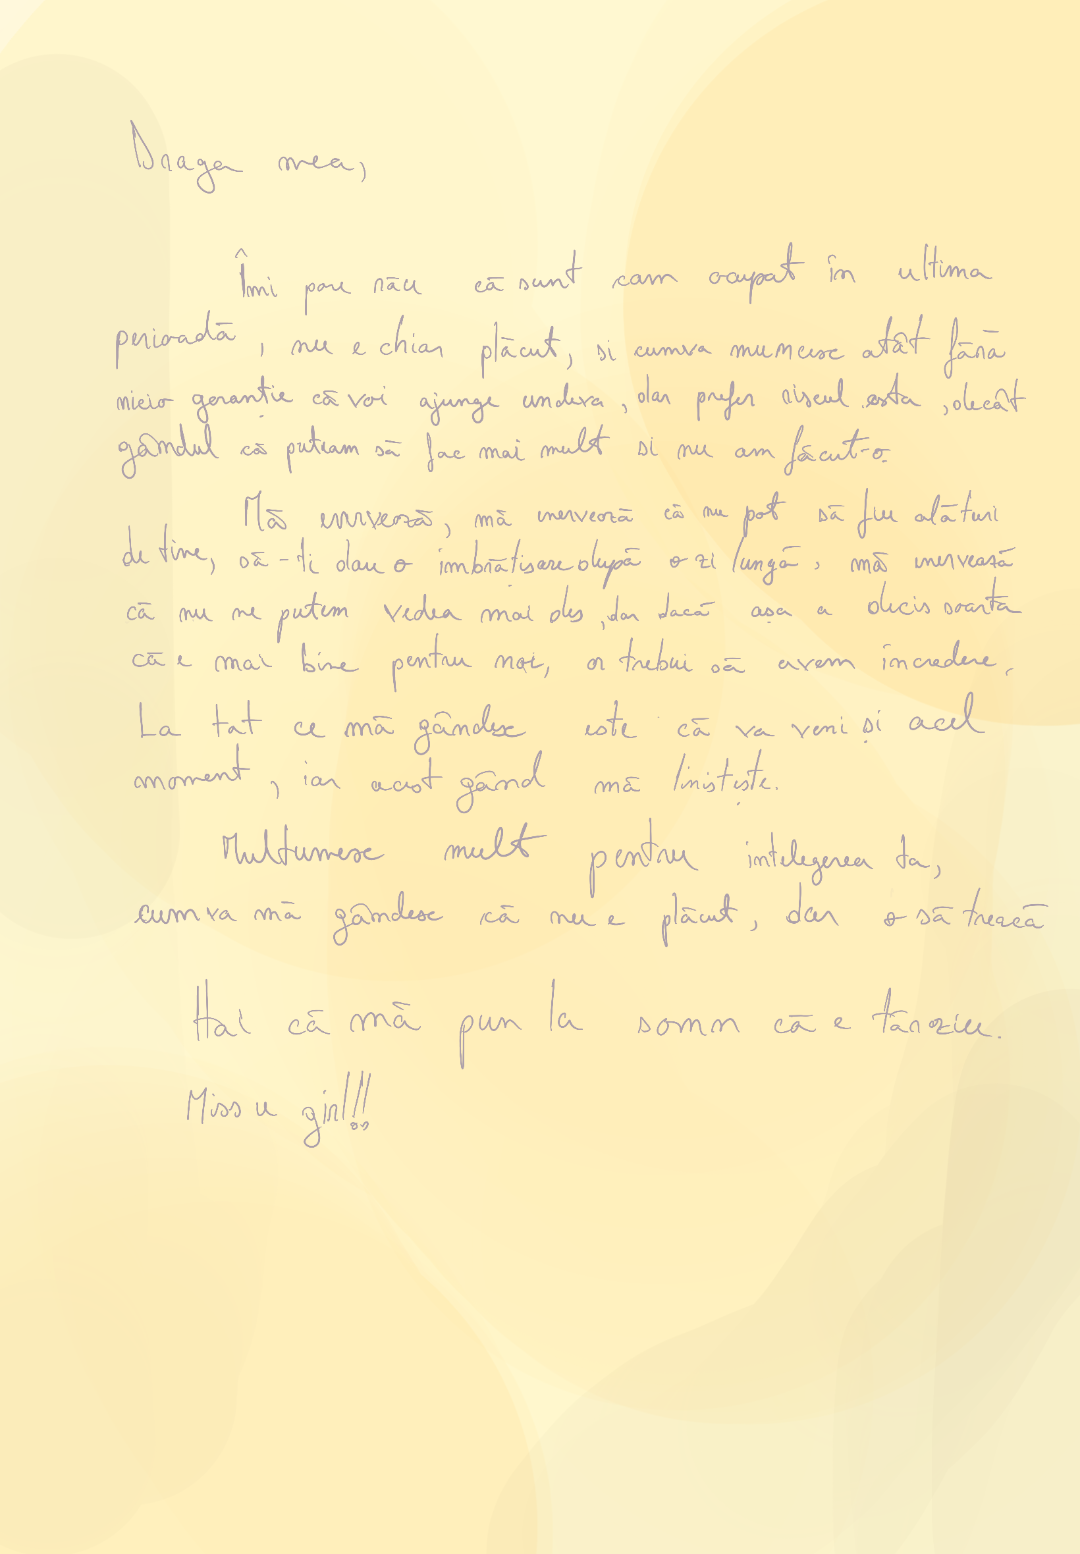 Draga mea,
Îmi pare rău că sunt cam ocupat în ultima
perioadă, nu e chiar plăcut, si cumva muncesc atât fără
nicio garanție că voi ajunge undeva, dar prefer riscul asta, decât
gândul că puteam să fac mai mult si nu am făcut-o.
Mă enervează, mă enervează că nu pot să fiu alături
de tine, să-ti dau o imbrățisare după o zi lungă, mă enervează
că nu ne putem vedea mai des, dar dacă așa a decis soarta
că e mai bine pentru noi, ar trebui să avem incredere.
La tot ce mă gândesc este că va veni și acel
moment, iar acest gând mă linistește.
Multumesc mult pentru intelegerea ta,
cumva mă gândesc că nu e plăcut, dar o să treacă
Hai că mă pun la somn că e târziu.
Miss u girl!!!